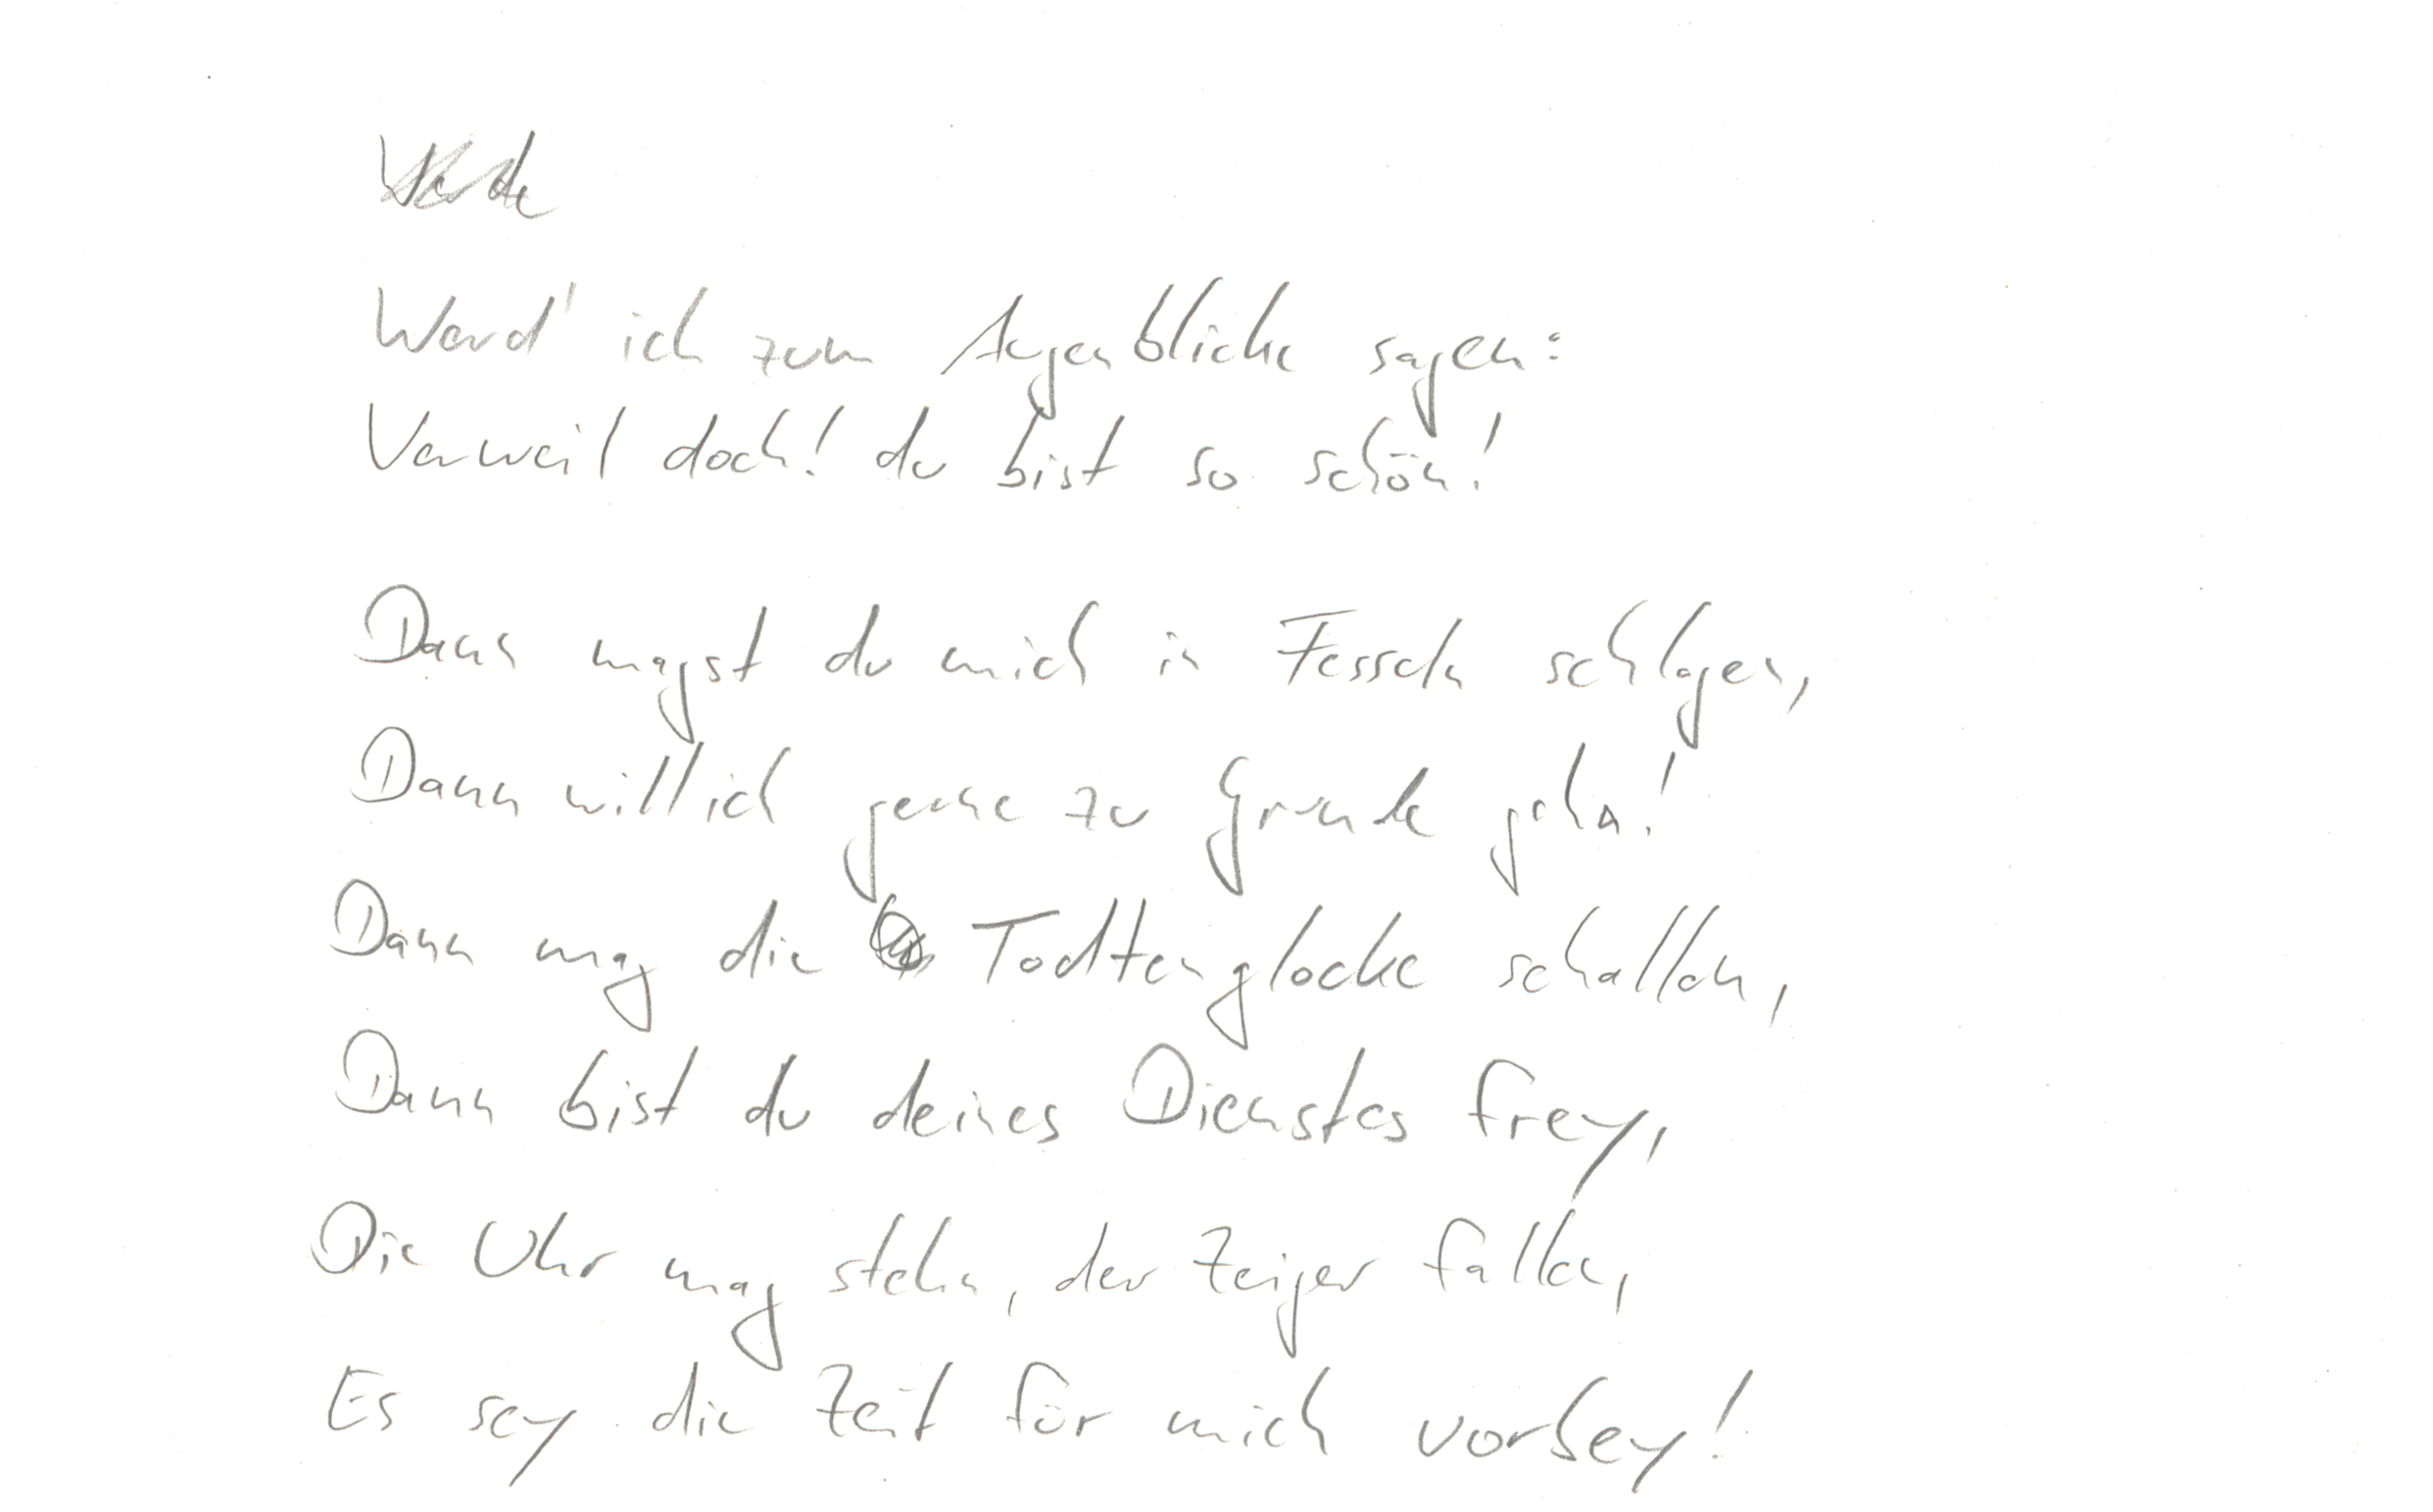 Werd' ich zum Augenblicke sagen:
Verweil doch! du bist so schön!
Dann magst du mich in Fesseln schlagen,
Dann will ich gerne zu Grunde gehn!
Dann mag die Todtenglocke schallen,
Dann bist du deines Dienstes frey,
Die Uhr mag stehn, der Zeiger fallen,
Es sey die Zeit für mich vorbey!